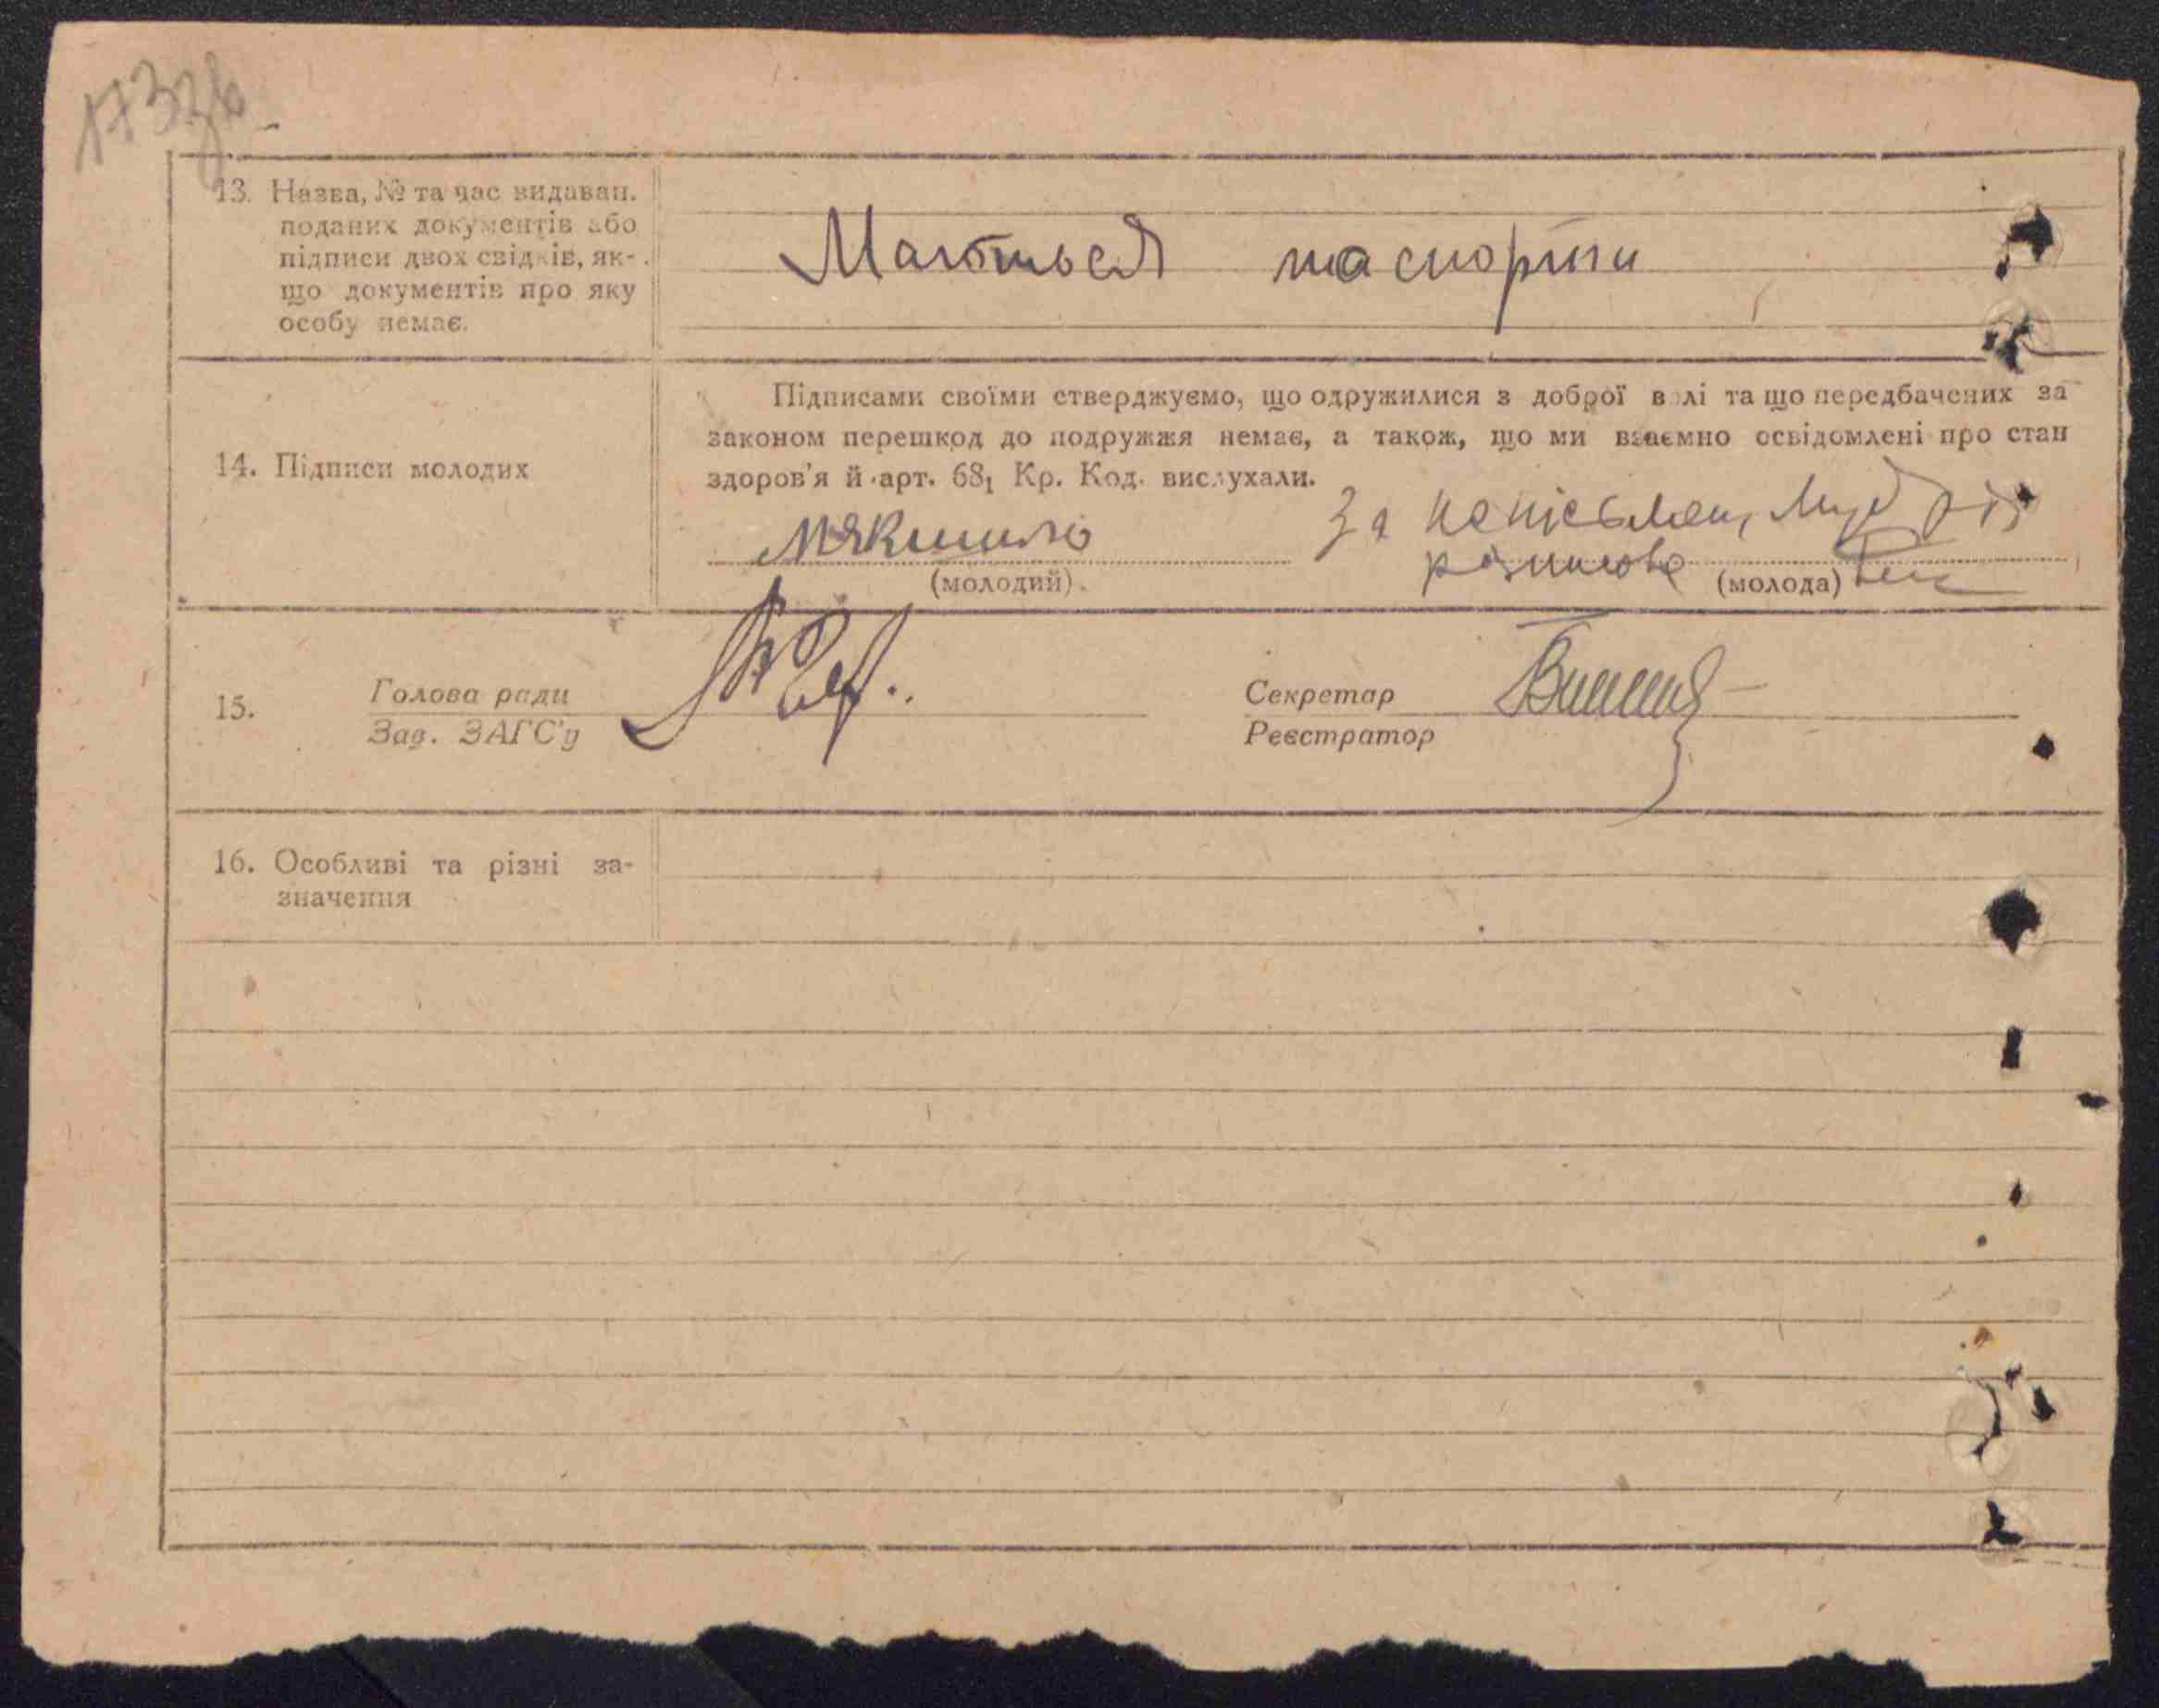 13. Назва, № та час видаван.
поданих документів або
підписи двох свідків, як-
що документів про яку
особу немає.
Маються паспорти
14. Підписи молодих
Підписами своїми стверджуємо, що одружилися з доброї волі та що передбачених за
законом перешкод до подружжя немає, а також, що ми взаємно освідомлені про стан
здоров'я й арт. 68₁ Кр. Код. вислухали.
За
(молодий).
(молода)
15.
Голова ради
Зав. ЗАГС'у
Секретар
Реєстратор
16. Особливі та різні за-
значення